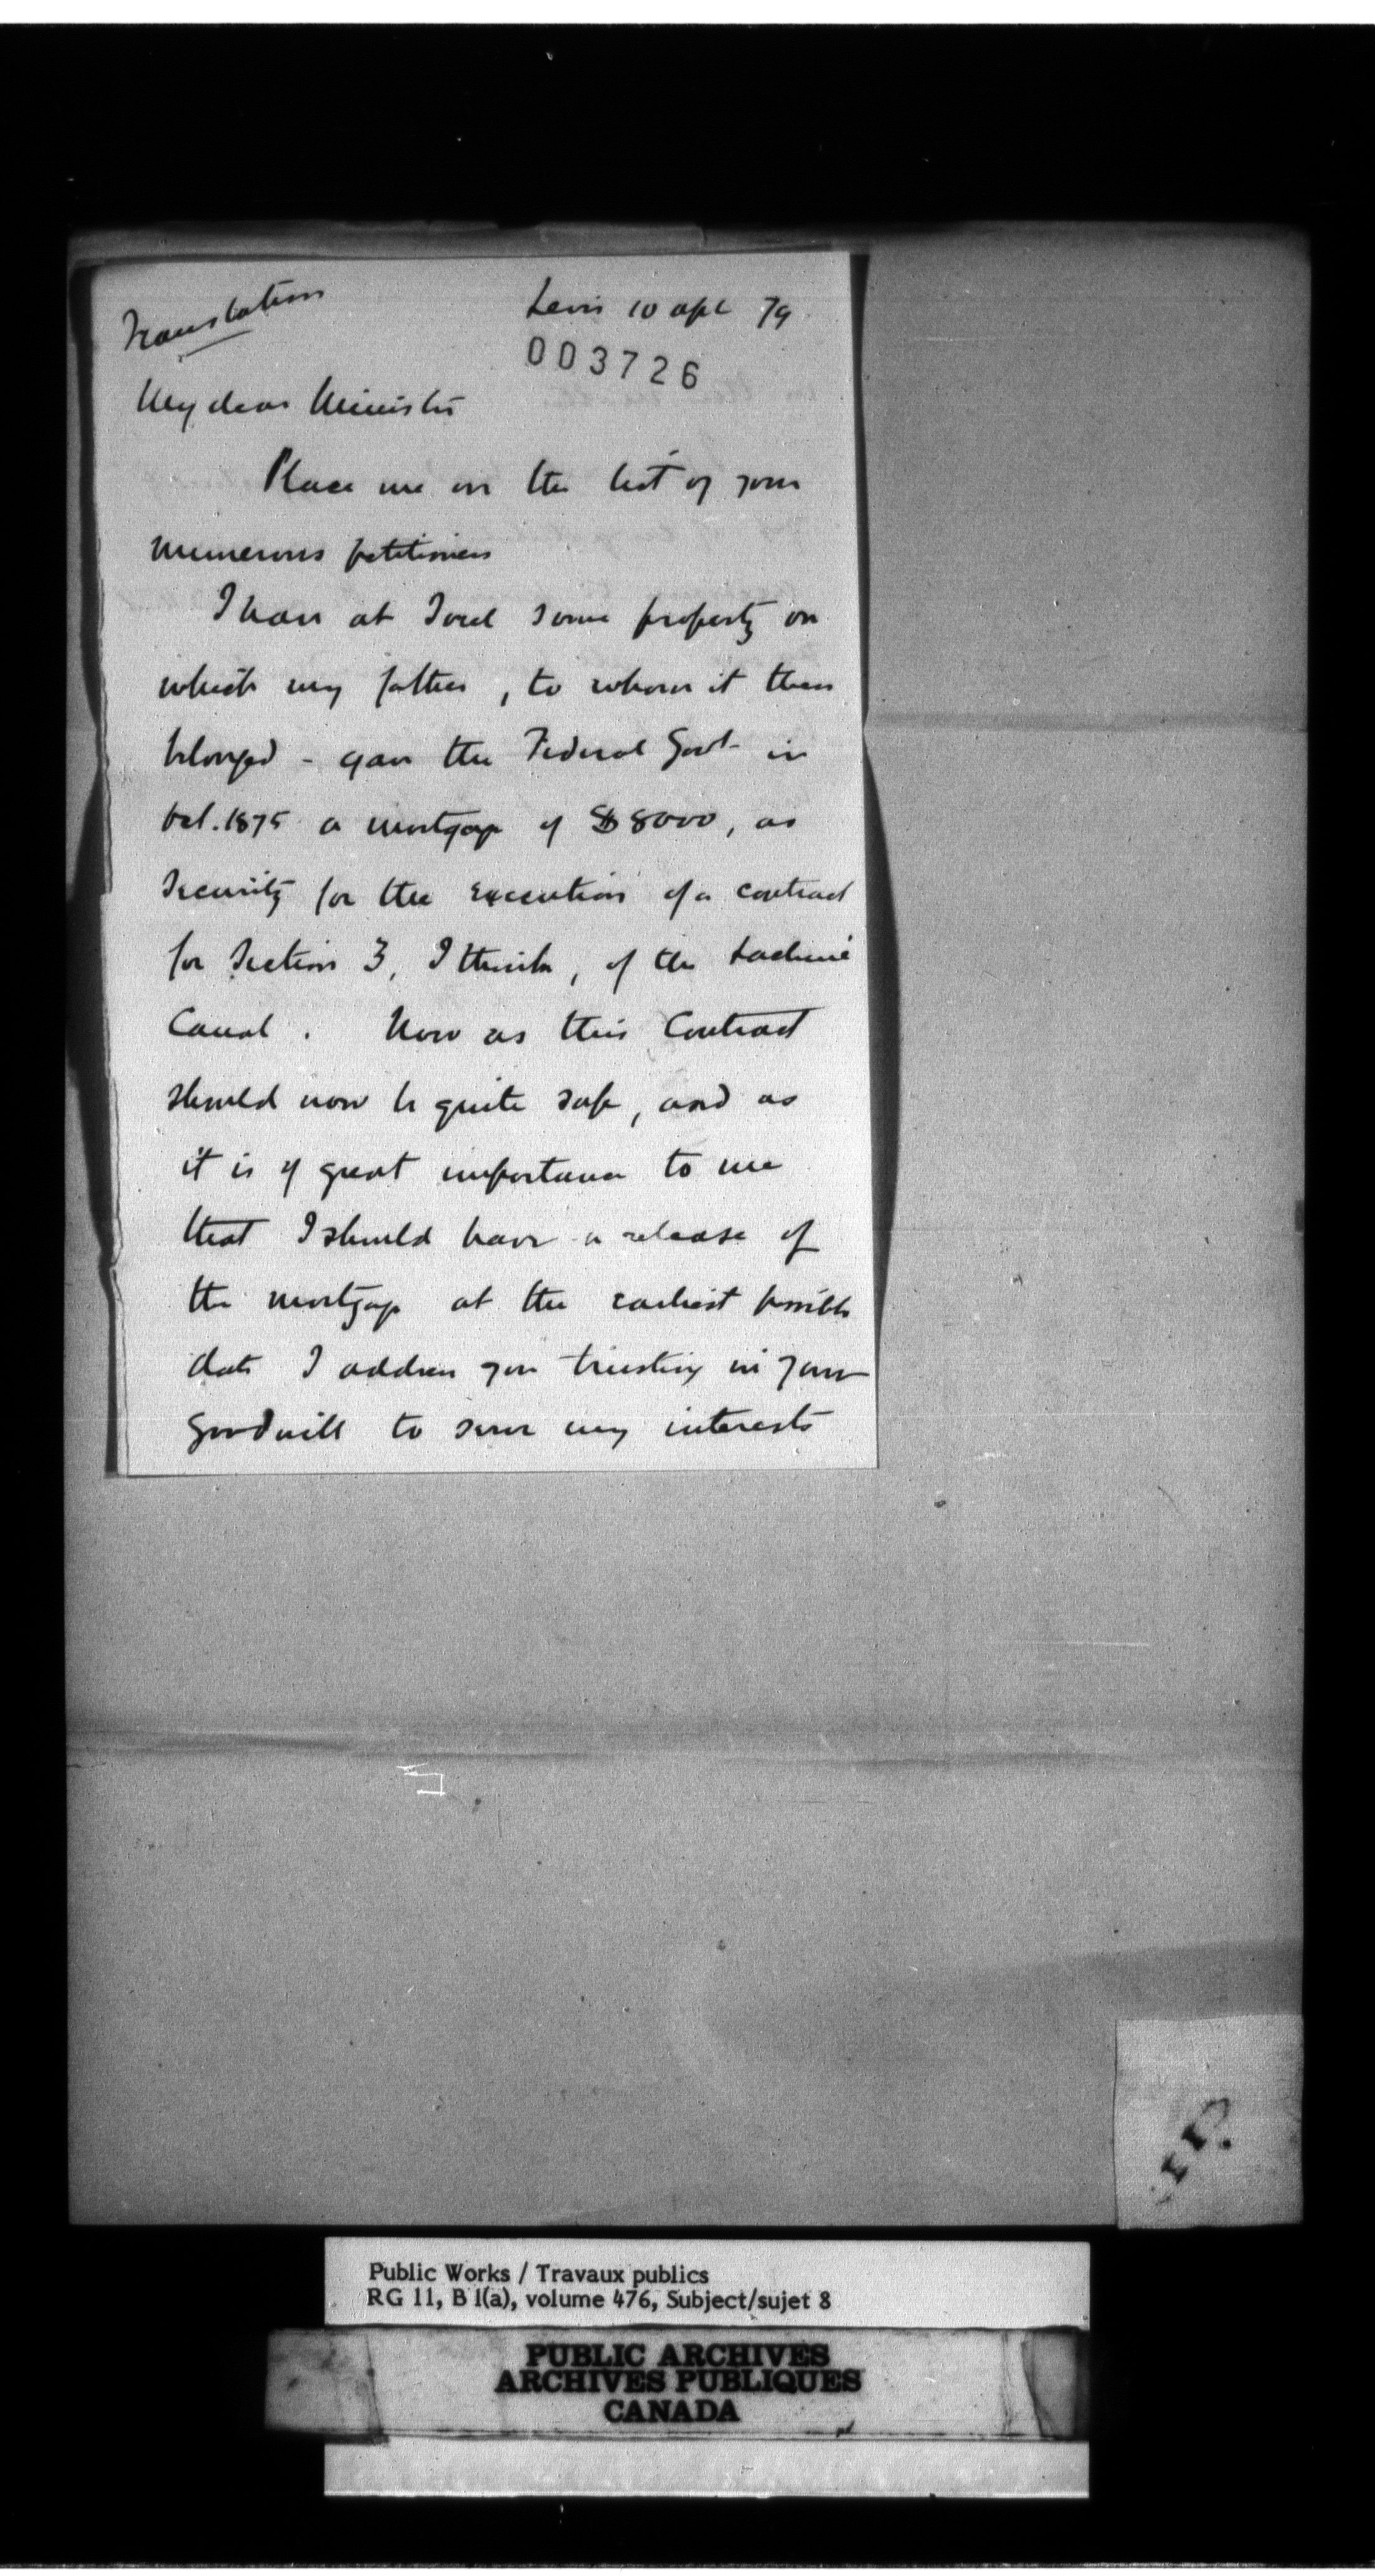 Translation
Levis 10 apl 79
003726
My dear Minister
Place me on the list of your
numerous petitioners
I have at Sorel some property on
which my father, to whom it then
belonged - gave the Federal Govt in
Oct. 1875 a mortgage of $8000, as
Security for the execution of a contract
for Section 3, I think, of the Lachine
Canal. Now as this Contract
should now be quite safe, and as
it is of great importance to me
that I should have a release of
the mortgage at the earliest possible
date I address you trusting in your
goodwill to serve my interests
Public Works / Travaux publics
RG 11, B 1(a), volume 476, Subject/sujet 8
PUBLIC ARCHIVES
ARCHIVES PUBLIQUES
CANADA